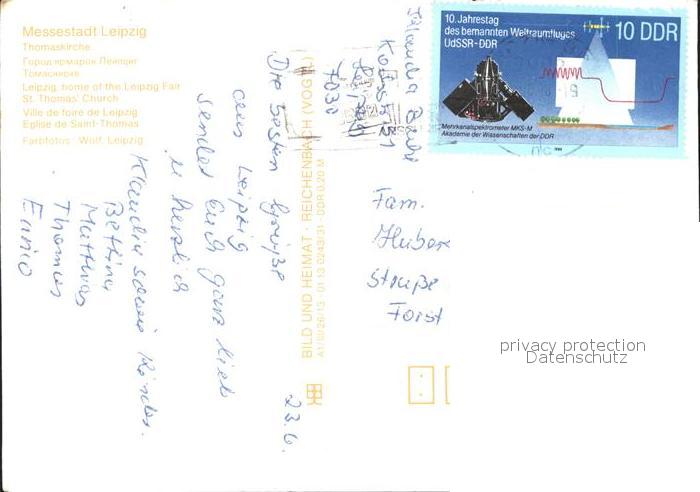 Messestadt Leipzig
Thomaskirche
Город ярмарок Лейпциг
Томаскирхе
Leipzig, home of the Leipzig Fair
St. Thomas' Church
Ville de foire de Leipzig
Eglise de Saint-Thomas
Farbfotos: Wolf, Leipzig
Die besten Grüße
aus Leipzig
sendet Euch ganz lieb
u. herzlich
Klaudia sowie Kinder.
Bettina
Matthias
Thomas
Enrico
23.6.
BILD UND HEIMAT · REICHENBACH (VOGTL)
A1/III/26/13 01 13 0243/31 · DDR 0,20 M
7030
10. Jahrestag
des bemannten Weltraumfluges
UdSSR-DDR
10 DDR
Mehrkanalspektrometer MKS-M
Akademie der Wissenschaften der DDR
1988
Fam.
Huber
Straße
Forst
privacy protection
Datenschutz